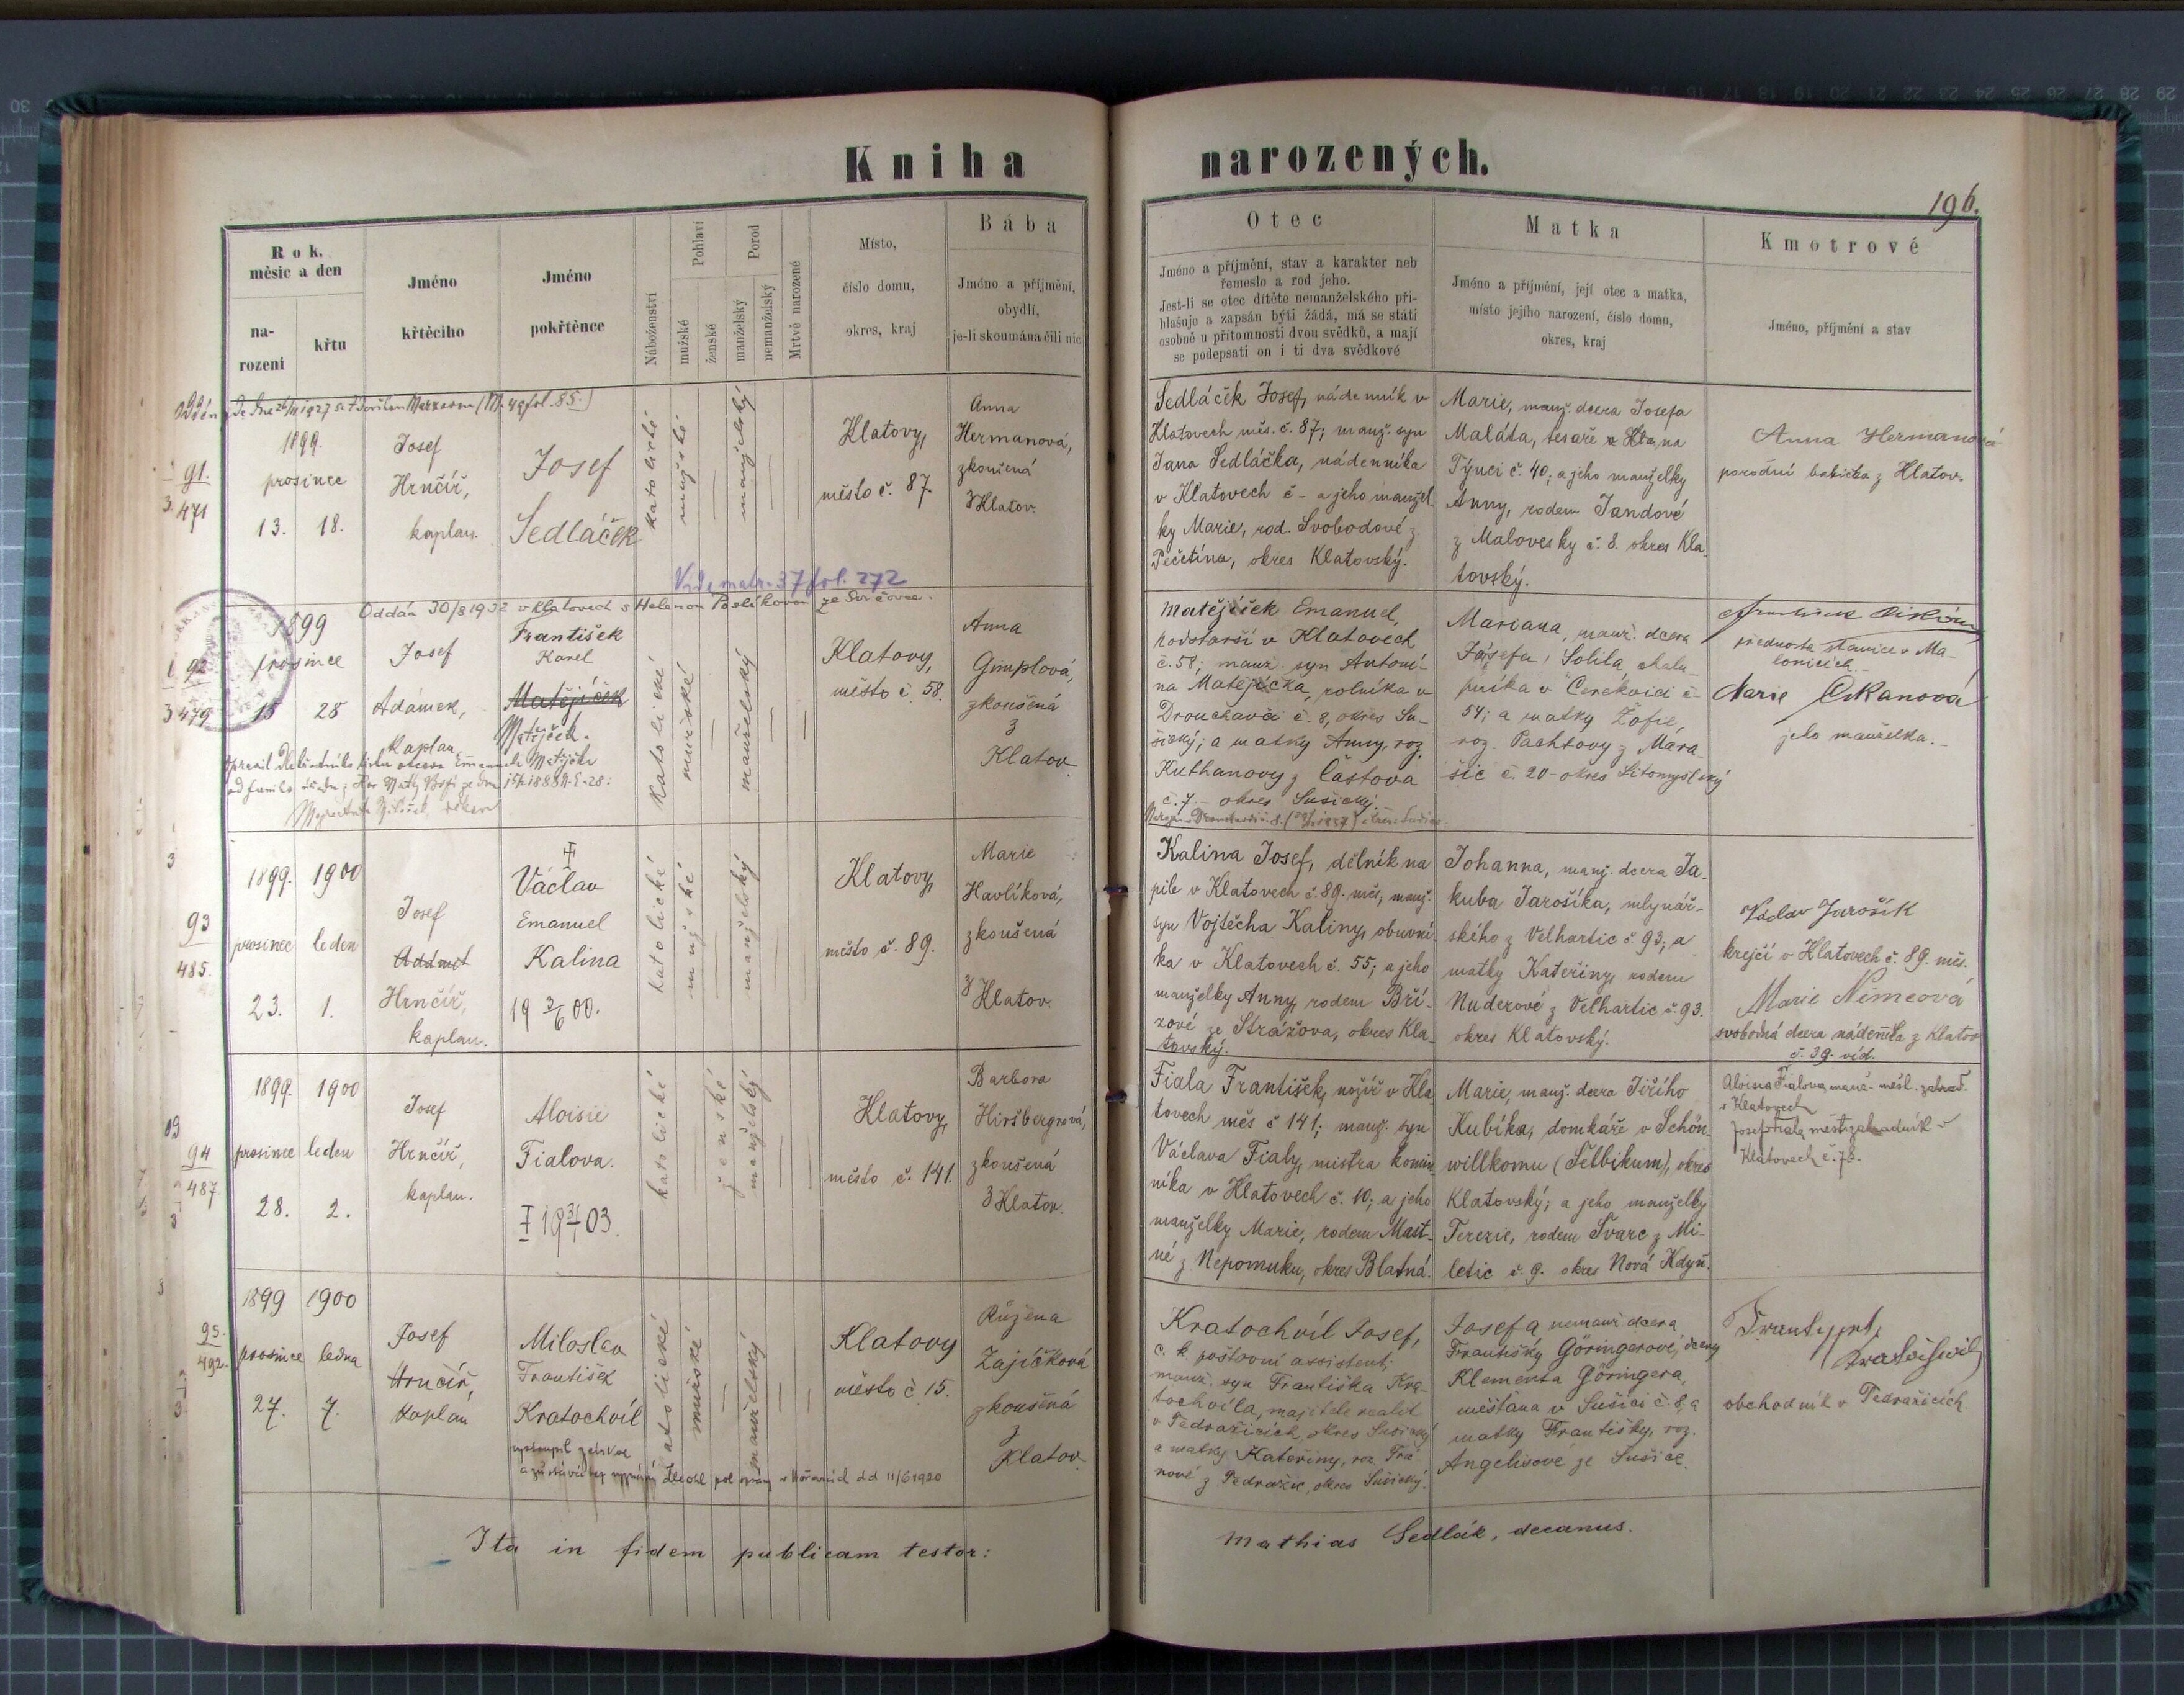 Kniha narozených.
196.
Rok,
měsíc a den
na-
rozeni
křtu
Jméno
křtěciho
Jméno
pokřtěnce
Náboženství
Pohlaví
mužské
ženské
Porod
manželský
nemanželský
Mrtvě narozené
Místo,
číslo domu,
okres, kraj
Bába
Jméno a příjmění,
obydlí,
je-li skoumána čili nic
Otec
Jméno a příjmění, stav a karakter neb
řemeslo a rod jeho.
Jest-li se otec dítěte nemanželského při-
hlašuje a zapsán býti žádá, má se státi
osobně u přítomnosti dvou svědků, a mají
se podepsati on i ti dva svědkové
Matka
Jméno a příjmění, její otec a matka,
místo jejího narození, číslo domu,
okres, kraj
Kmotrové
Jméno, příjmění a stav
91.
471
1899.
prosince
13. 18.
Josef
Hrnčíř,
kaplan.
Josef
Sedláček
katolické
mužské
manželský
Klatovy,
město č. 87.
Anna
Hermanová,
zkoušená
z Klatov.
Sedláček Josef, nádenník v
Klatovech měs. č. 87; manž. syn
Jana Sedláčka, nádenníka
v Klatovech č - a jeho manžel-
ky Marie, rod. Svobodové z
Pečetína, okres Klatovský.
Marie, manž. dcera Josefa
Maláta, tesaře na
Týnci č. 40; a jeho manželky
Anny, rodem Jandové
z Malovesky č. 8. okres Kla-
tovský.
Anna Hermanová
porodní babička z Klatov.
Vide matr. 37 fol. 272
Oddán 30/8 1932 v Klatovech s Helenou
92
479
1899
prosince
15 28
Josef
Adámek,
Kaplan
František
Karel
Matějíček
Matějček.
katolické
mužské
manželský
Klatovy,
město č. 58.
Anna
Gimplová,
zkoušená
z
Klatov.
Matějíček Emanuel,
v Klatovech
č. 58; manž. syn Antoní-
na Matějíčka, rolníka v
Drouhavči č. 8, okres Su-
šický; a matky Anny, roz.
Kuthanovy z Částova
č. 7. - okres Sušický.
Mariana, manž. dcera
Josefa, chalu-
pníka v Cerekvici č.
54; a matky Žofie,
roz. Pachtovy z Mara-
šic č. 20 - okres Litomyšlský
přednosta stanice v Ma-
lonicích.
Marie
jeho manželka.
93
485.
1899. 1900
prosinec leden
23. 1.
Josef
Hrnčíř,
kaplan.
Václav
Emanuel
Kalina
19 3/6 00.
katolické
mužské
manželský
Klatovy,
město č. 89.
Marie
Havlíková,
zkoušená
z Klatov.
Kalina Josef, dělník na
pile v Klatovech č. 89. měs; manž.
syn Vojtěcha Kaliny, obuvní-
ka v Klatovech č. 55; a jeho
manželky Anny, rodem Bří-
zové ze Strážova, okres Kla-
tovský.
Johanna, manž. dcera Ja-
kuba Jarošíka, mlynář-
ského z Velhartic č. 93; a
matky Kateřiny, rodem
Nuderové z Velhartic č. 93.
okres Klatovský.
Václav Jarošík
krejčí v Klatovech č. 89. měs.
Marie Němcová
svobodná dcera nádeníka z Klatov
č. 39. víd.
94
487.
1899. 1900
prosinec leden
28. 2.
Josef
Hrnčíř,
kaplan.
Aloisie
Fialova.
19 31/1 03.
katolické
ženské
manželský
Klatovy,
město č. 141.
Barbora
Hiršbergrová,
zkoušená
z Klatov.
Fiala František, nožíř v Kla-
tovech měs č 141; manž. syn
Václava Fialy, mistra komin-
níka v Klatovech č. 10; a jeho
manželky Marie, rodem Mast-
né z Nepomuku, okres Blatná.
Marie, manž. dcera Jiřího
Kubíka, domkáře v Schön-
willkomu (Šelbikum), okres
Klatovský; a jeho manželky
Terezie, rodem Švarc z Mi-
letic č. 9. okres Nová Kdyň.
Aloisa Fialova, manž. měšť. zahrad.
v Klatovech
Josef Fiala, měst. zahradník v
Klatovech č. 78.
95.
492.
1899 1900
prosince ledna
27. 7.
Josef
Hrnčíř,
kaplan
Miloslav
František
Kratochvíl
katolické
mužské
manželský
Klatovy
město č 15.
Růžena
Zajíčková
zkoušená
z
Klatov.
dd 11/6 1920
Kratochvíl Josef,
c. k. poštovní assistent;
manž. syn Františka Kra-
tochvíla, majitele realit
v Pedražicích, okres Sušický
a matky Kateřiny, roz.
nové z Pedražic, okres Sušický.
Josefa nemanž dcera
Františky Göringerové, dcery
Klementa Göringera,
měšťana v Sušici č. 8, a
matky Františky, roz.
Angelisové ze Sušice.
Kratochvíl
obchodník v Pedražicích
Ita in fidem publicam testor:
Mathias Sedlák, decanus.